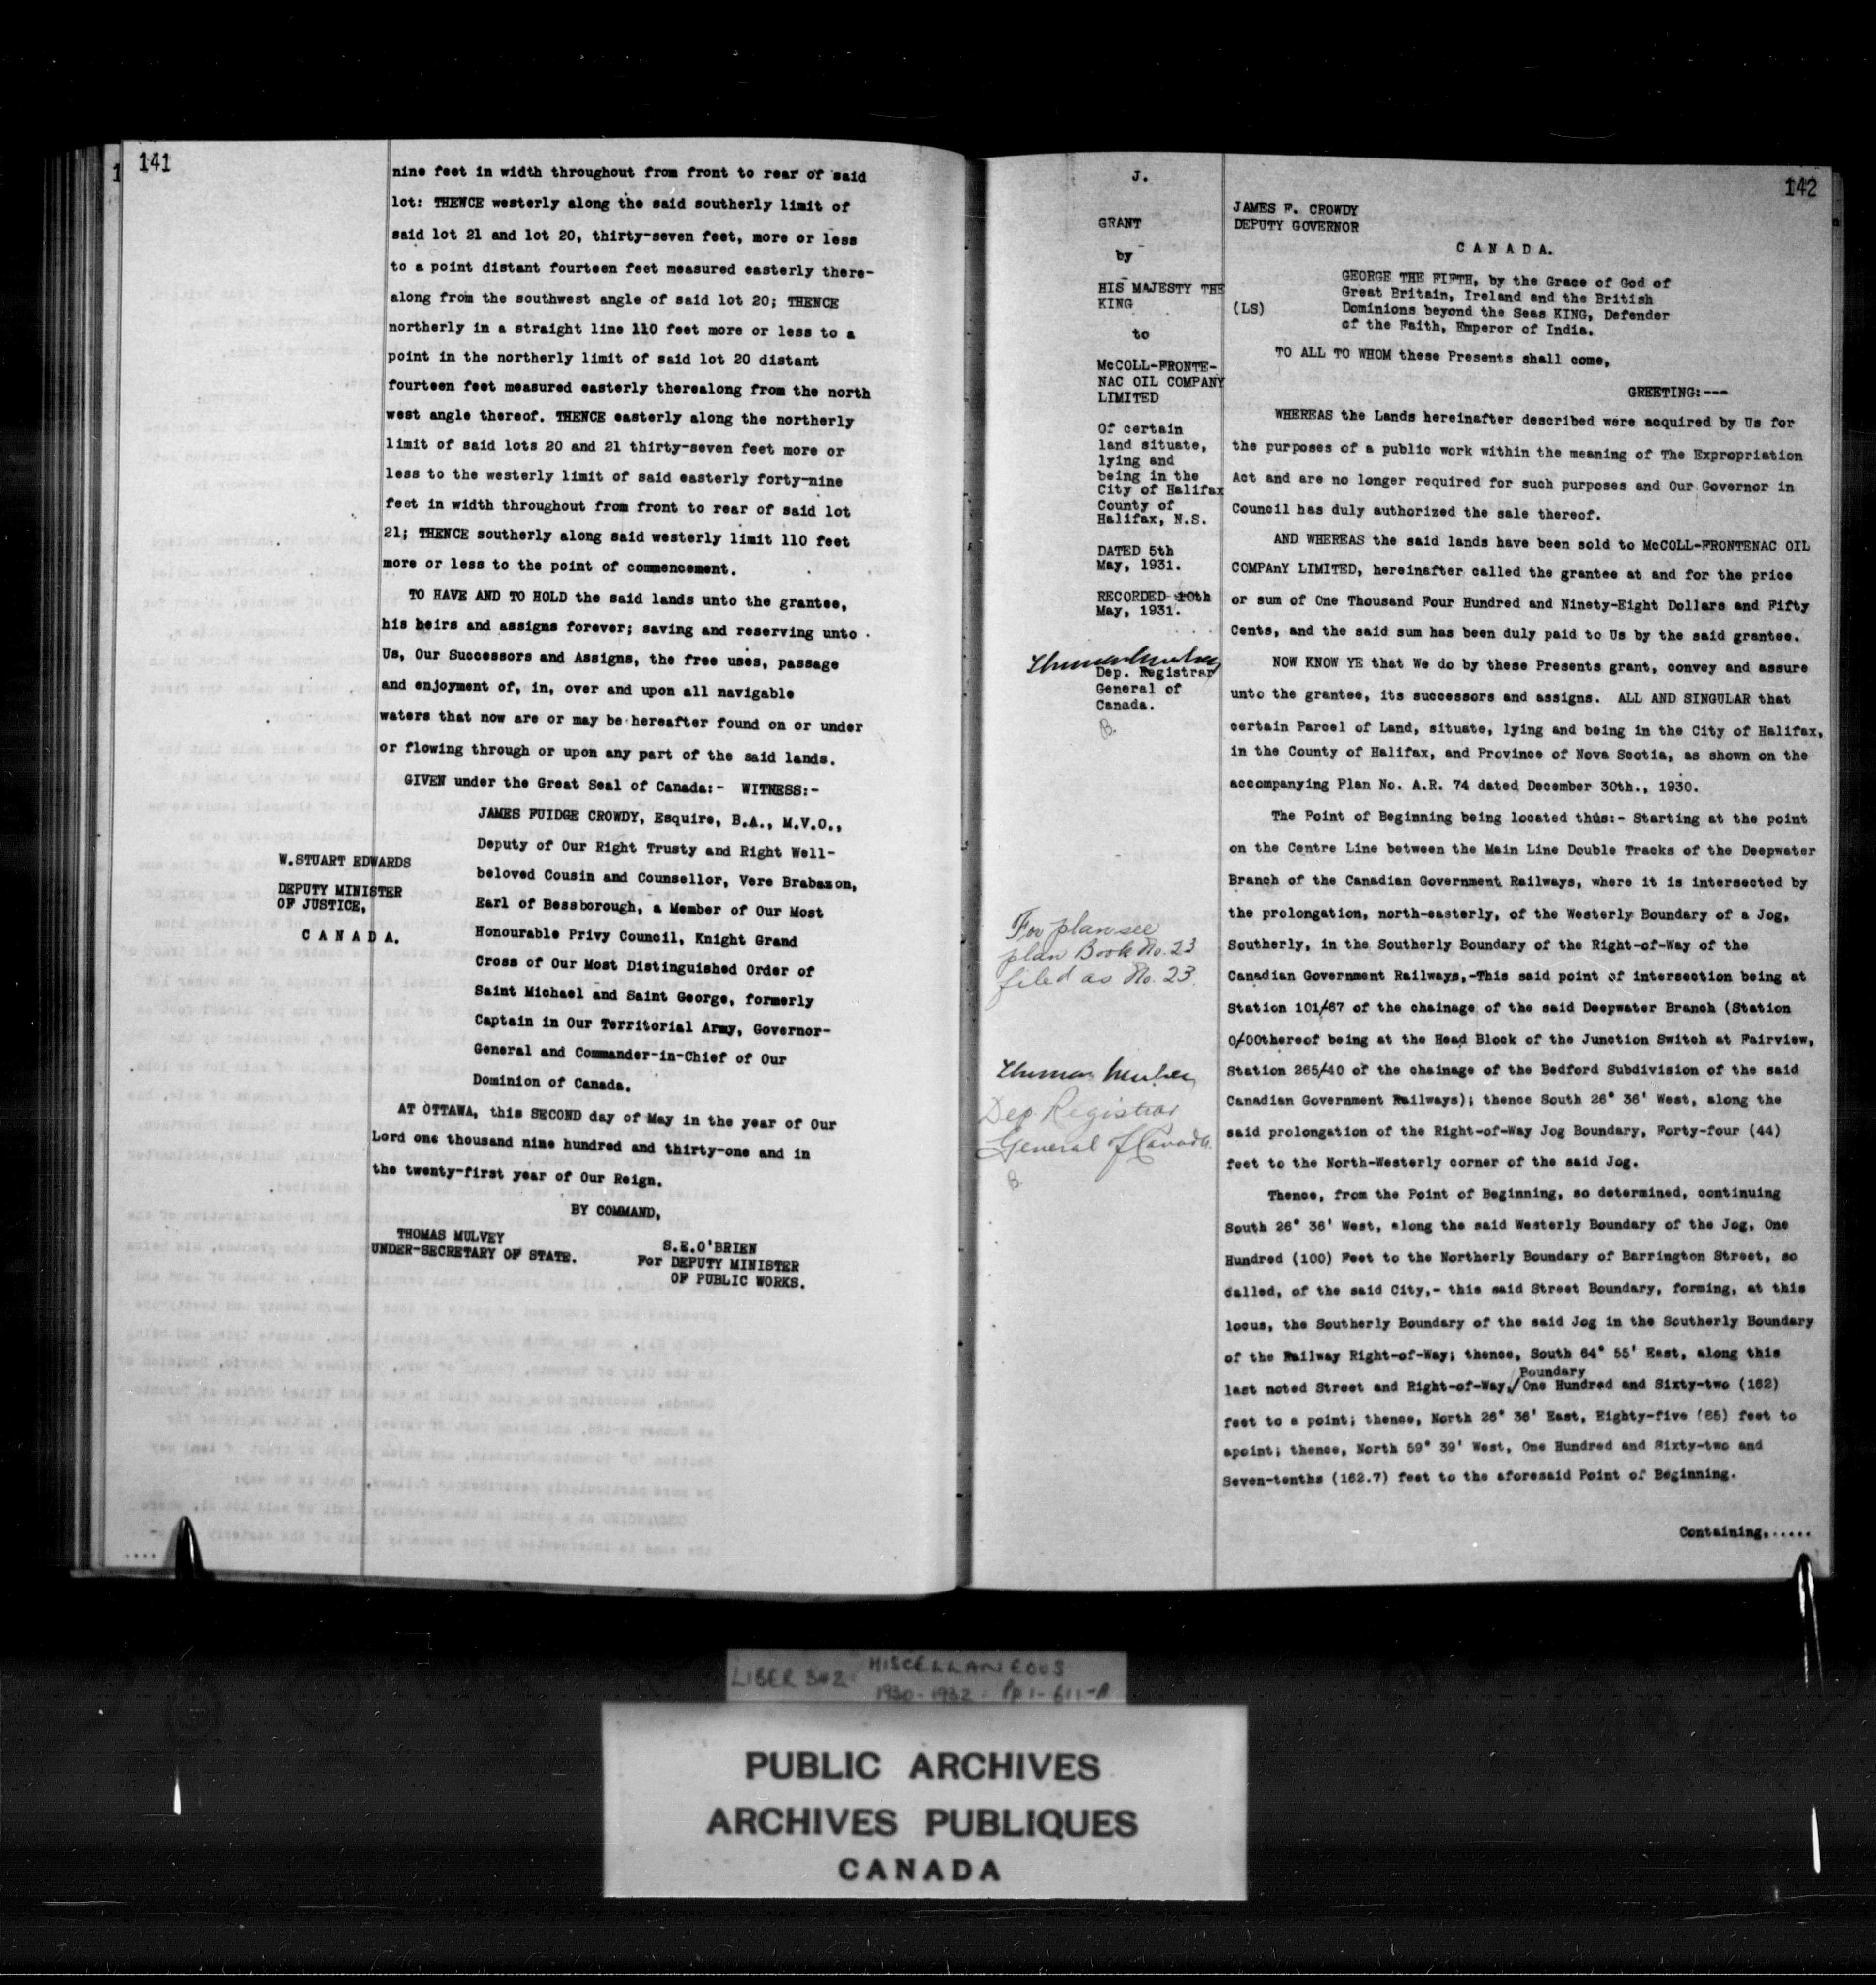 141
nine feet in width throughout from front to rear of said
lot: THENCE westerly along the said southerly limit of
said lot 21 and lot 20, thirty-seven feet, more or less
to a point distant fourteen feet measured easterly there-
along from the southwest angle of said lot 20; THENCE
northerly in a straight line 110 feet more or less to a
point in the northerly limit of said lot 20 distant
fourteen feet measured easterly therealong from the north
west angle thereof. THENCE easterly along the northerly
limit of said lots 20 and 21 thirty-seven feet more or
less to the westerly limit of said easterly forty-nine
feet in width throughout from front to rear of said lot
21; THENCE southerly along said westerly limit 110 feet
more or less to the point of commencement.
TO HAVE AND TO HOLD the said lands unto the grantee,
his heirs and assigns forever; saving and reserving unto
Us, Our Successors and Assigns, the free uses, passage
and enjoyment of, in, over and upon all navigable
waters that now are or may be hereafter found on or under
or flowing through or upon any part of the said lands.
GIVEN under the Great Seal of Canada:- WITNESS:-
JAMES FUIDGE CROWDY, Esquire, B.A., M.V.O.,
Deputy of Our Right Trusty and Right Well-
beloved Cousin and Counsellor, Vere Brabazon,
Earl of Bessborough, a Member of Our Most
Honourable Privy Council, Knight Grand
Cross of Our Most Distinguished Order of
Saint Michael and Saint George, formerly
Captain in Our Territorial Army, Governor-
General and Commander-in-Chief of Our
Dominion of Canada.
W.STUART EDWARDS
DEPUTY MINISTER
OF JUSTICE,
C A N A D A.
AT OTTAWA, this SECOND day of May in the year of Our
Lord one thousand nine hundred and thirty-one and in
the twenty-first year of Our Reign.
BY COMMAND,
THOMAS MULVEY
UNDER-SECRETARY OF STATE.
S.E.O'BRIEN
For DEPUTY MINISTER
OF PUBLIC WORKS.
142
J.
GRANT
by
HIS MAJESTY THE
KING
to
McCOLL-FRONTE-
NAC OIL COMPANY
LIMITED
Of certain
land situate,
lying and
being in the
City of Halifax
County of
Halifax, N.S.
DATED 5th
May, 1931.
RECORDED 10th
May, 1931.
Thomas Mulvey
Dep. Registrar
General of
Canada.
B.
For plan see
plan Book No. 23
filed as No. 23.
Thomas Mulvey
Dep Registrar
General of Canada.
B
JAMES F. CROWDY
DEPUTY GOVERNOR
C A N A D A.
(LS)
GEORGE THE FIFTH, by the Grace of God of
Great Britain, Ireland and the British
Dominions beyond the Seas KING, Defender
of the Faith, Emperor of India.
TO ALL TO WHOM these Presents shall come,
GREETING:---
WHEREAS the Lands hereinafter described were acquired by Us for
the purposes of a public work within the meaning of The Expropriation
Act and are no longer required for such purposes and Our Governor in
Council has duly authorized the sale thereof.
AND WHEREAS the said lands have been sold to McCOLL-FRONTENAC OIL
COMPAnY LIMITED, hereinafter called the grantee at and for the price
or sum of One Thousand Four Hundred and Ninety-Eight Dollars and Fifty
Cents, and the said sum has been duly paid to Us by the said grantee.
NOW KNOW YE that We do by these Presents grant, convey and assure
unto the grantee, its successors and assigns. ALL AND SINGULAR that
certain Parcel of Land, situate, lying and being in the City of Halifax,
in the County of Halifax, and Province of Nova Scotia, as shown on the
accompanying Plan No. A.R. 74 dated December 30th., 1930.
The Point of Beginning being located thus:- Starting at the point
on the Centre Line between the Main Line Double Tracks of the Deepwater
Branch of the Canadian Government Railways, where it is intersected by
the prolongation, north-easterly, of the Westerly Boundary of a Jog,
Southerly, in the Southerly Boundary of the Right-of-Way of the
Canadian Government Railways,-This said point of intersection being at
Station 101/67 of the chainage of the said Deepwater Branch (Station
0/00thereof being at the Head Block of the Junction Switch at Fairview,
Station 265/40 of the chainage of the Bedford Subdivision of the said
Canadian Government Railways); thence South 26° 36' West, along the
said prolongation of the Right-of-Way Jog Boundary, Forty-four (44)
feet to the North-Westerly corner of the said Jog.
Thence, from the Point of Beginning, so determined, continuing
South 26° 36' West, along the said Westerly Boundary of the Jog, One
Hundred (100) Feet to the Northerly Boundary of Barrington Street, so
called, of the said City,- this said Street Boundary, forming, at this
locus, the Southerly Boundary of the said Jog in the Southerly Boundary
of the Railway Right-of-Way; thence, South 64° 55' East, along this
Boundary
last noted Street and Right-of-Way,/One Hundred and Sixty-two (162)
feet to a point; thence, North 26° 36' East, Eighty-five (85) feet to
apoint; thence, North 59° 39' West, One Hundred and Sixty-two and
Seven-tenths (162.7) feet to the aforesaid Point of Beginning.
Containing,.....
LIBER 342 MISCELLANEOUS
1930-1932: Pp 1-611-A
PUBLIC ARCHIVES
ARCHIVES PUBLIQUES
CANADA